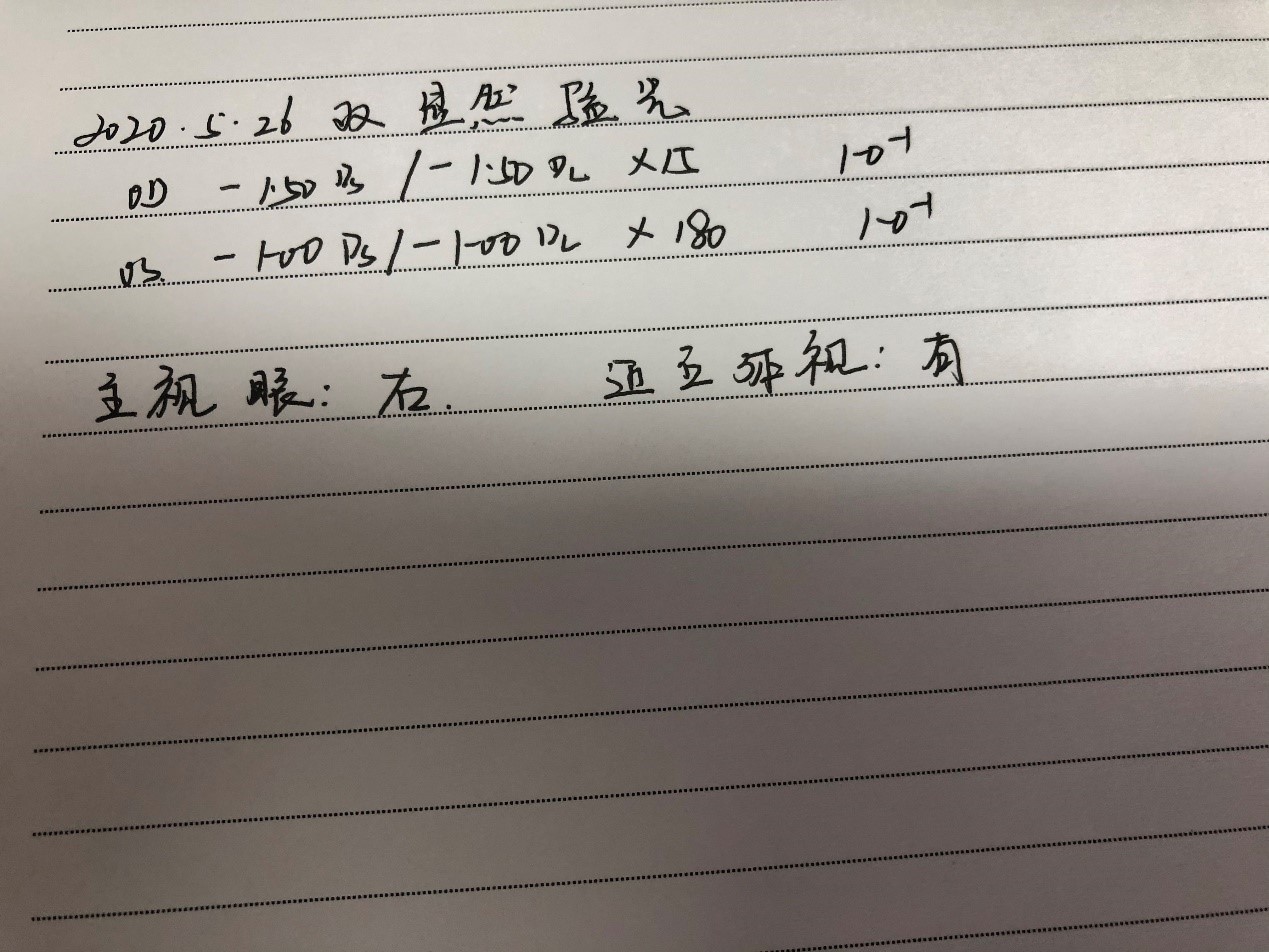 2020.5.26 双显然验光
OD -1.50 Ds / -1.50 Dc ×15 1.0⁻¹
OS. -1.00 Ds / -1.00 Dc × 180 1.0⁻¹
主视眼：右. 近立体视：有